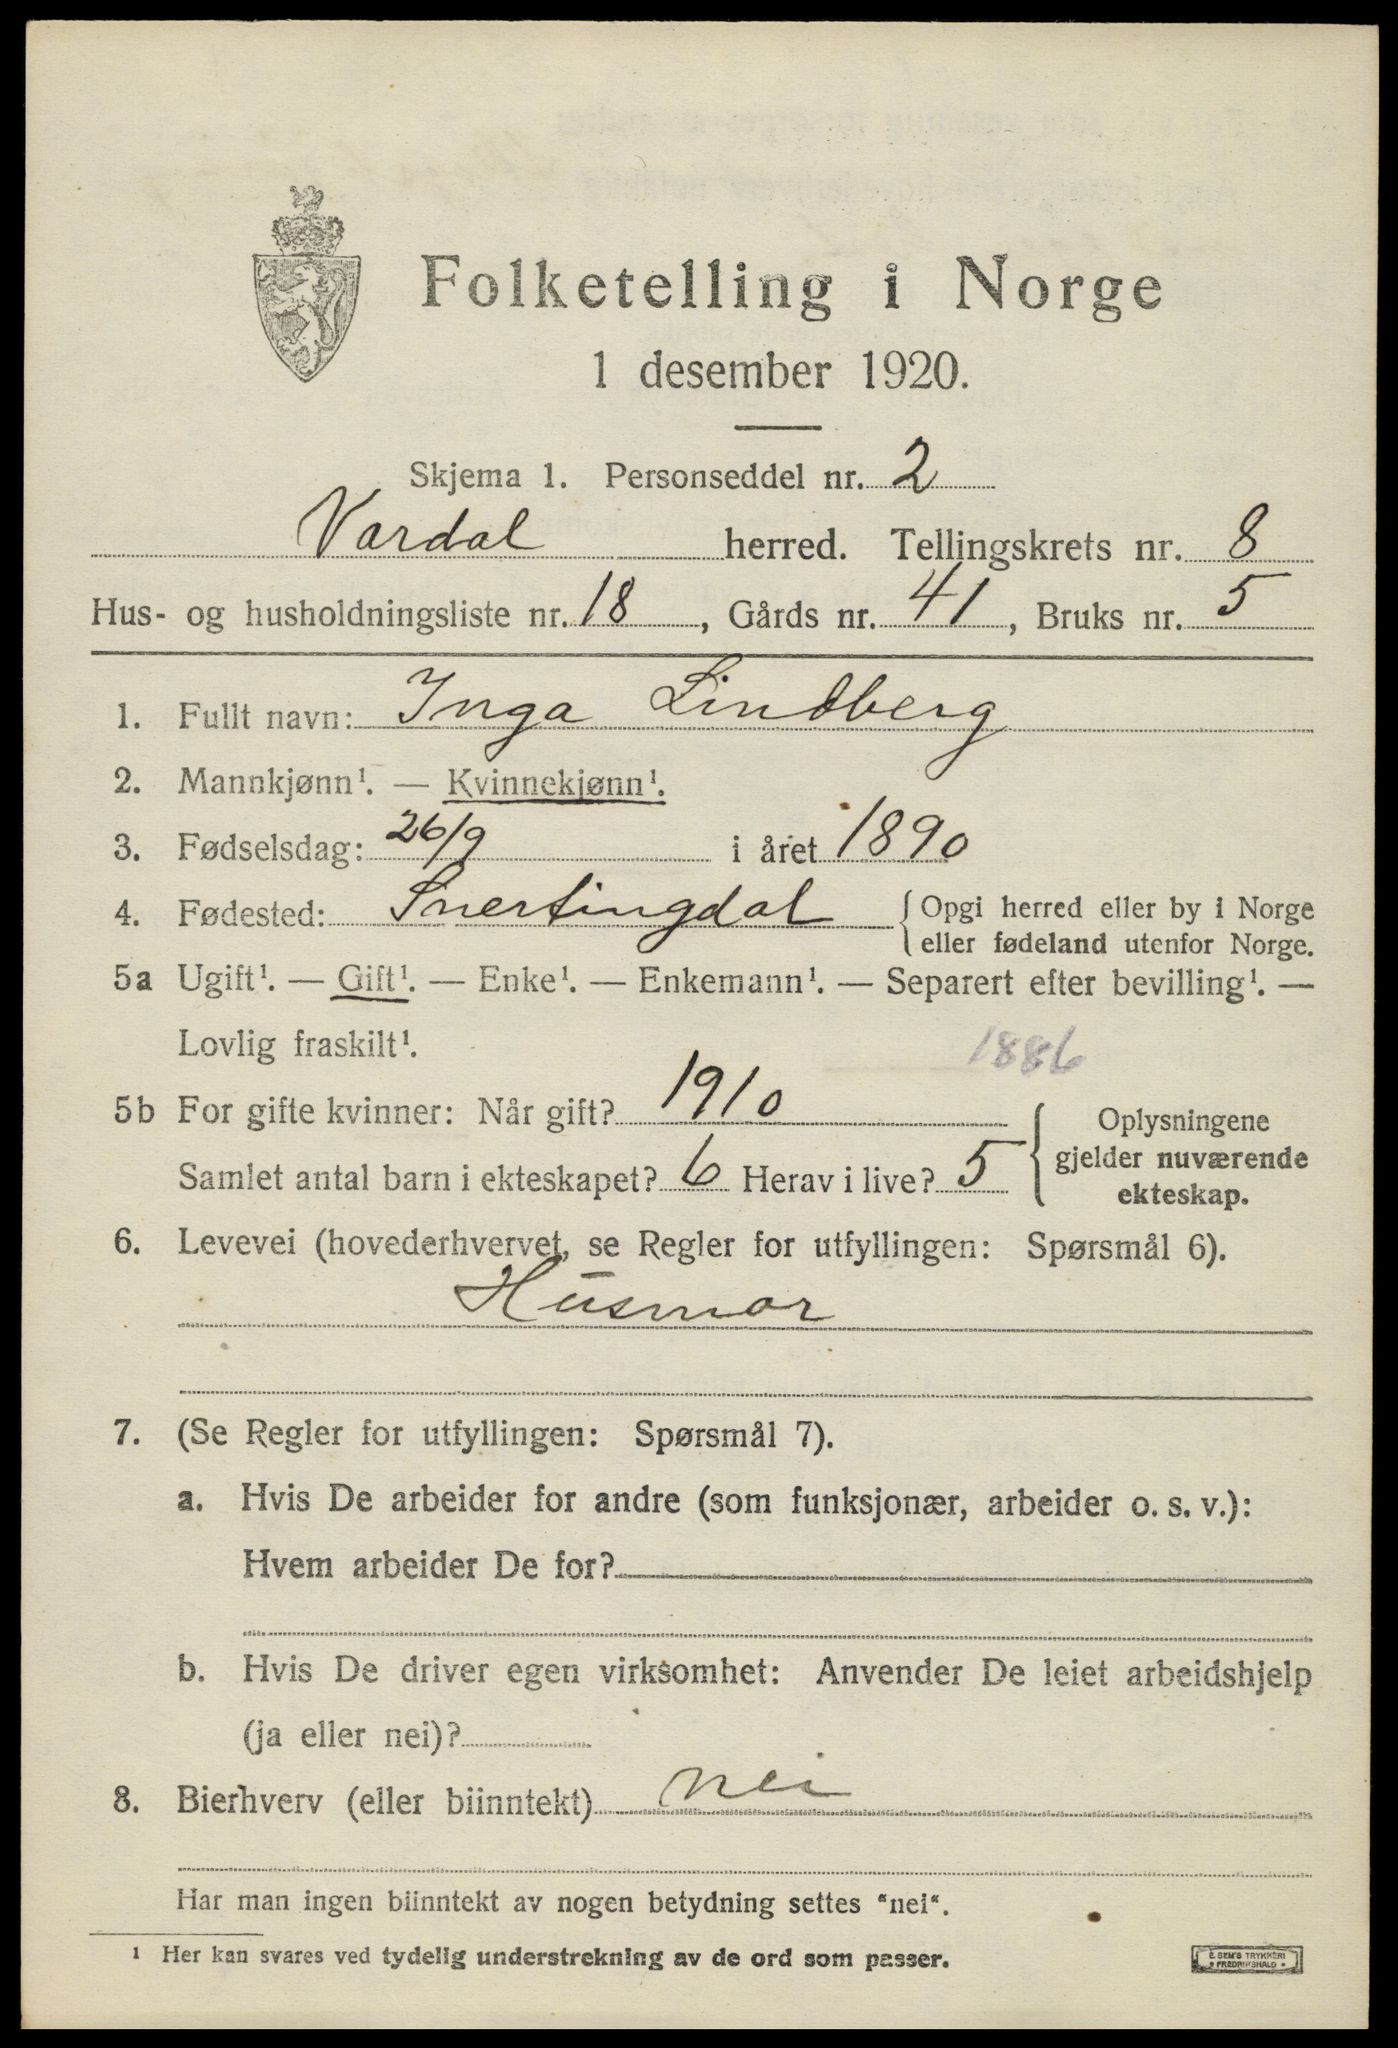 Folketelling i Norge
1 desember 1920.
Skjema 1. Personseddel nr. 2
Vardal herred. Tellingskrets nr. 8
Hus- og husholdningsliste nr. 18, Gårds nr. 41, Bruks nr. 5
1. Fullt navn: Inga Lindberg
2. Mannkjønn¹. — Kvinnekjønn¹.
3. Fødselsdag: 26/9 i året 1890
4. Fødested: Snertingdal { Opgi herred eller by i Norge
eller fødeland utenfor Norge.
5a Ugift¹. — Gift¹. — Enke¹. — Enkemann¹. — Separert efter bevilling¹. —
Lovlig fraskilt¹. 1886
5b For gifte kvinner: Når gift? 1910
Samlet antal barn i ekteskapet? 6 Herav i live? 5
{ Oplysningene
gjelder nuværende
ekteskap.
6. Levevei (hovederhvervet, se Regler for utfyllingen: Spørsmål 6).
Husmor
7. (Se Regler for utfyllingen: Spørsmål 7).
a. Hvis De arbeider for andre (som funksjonær, arbeider o. s. v.):
Hvem arbeider De for?
b. Hvis De driver egen virksomhet: Anvender De leiet arbeidshjelp
(ja eller nei)?
8. Bierhverv (eller biinntekt) nei
Har man ingen biinntekt av nogen betydning settes “nei“.
¹ Her kan svares ved tydelig understrekning av de ord som passer.
E. SEM'S TRYKKERI
• FREDRIKSHALD •